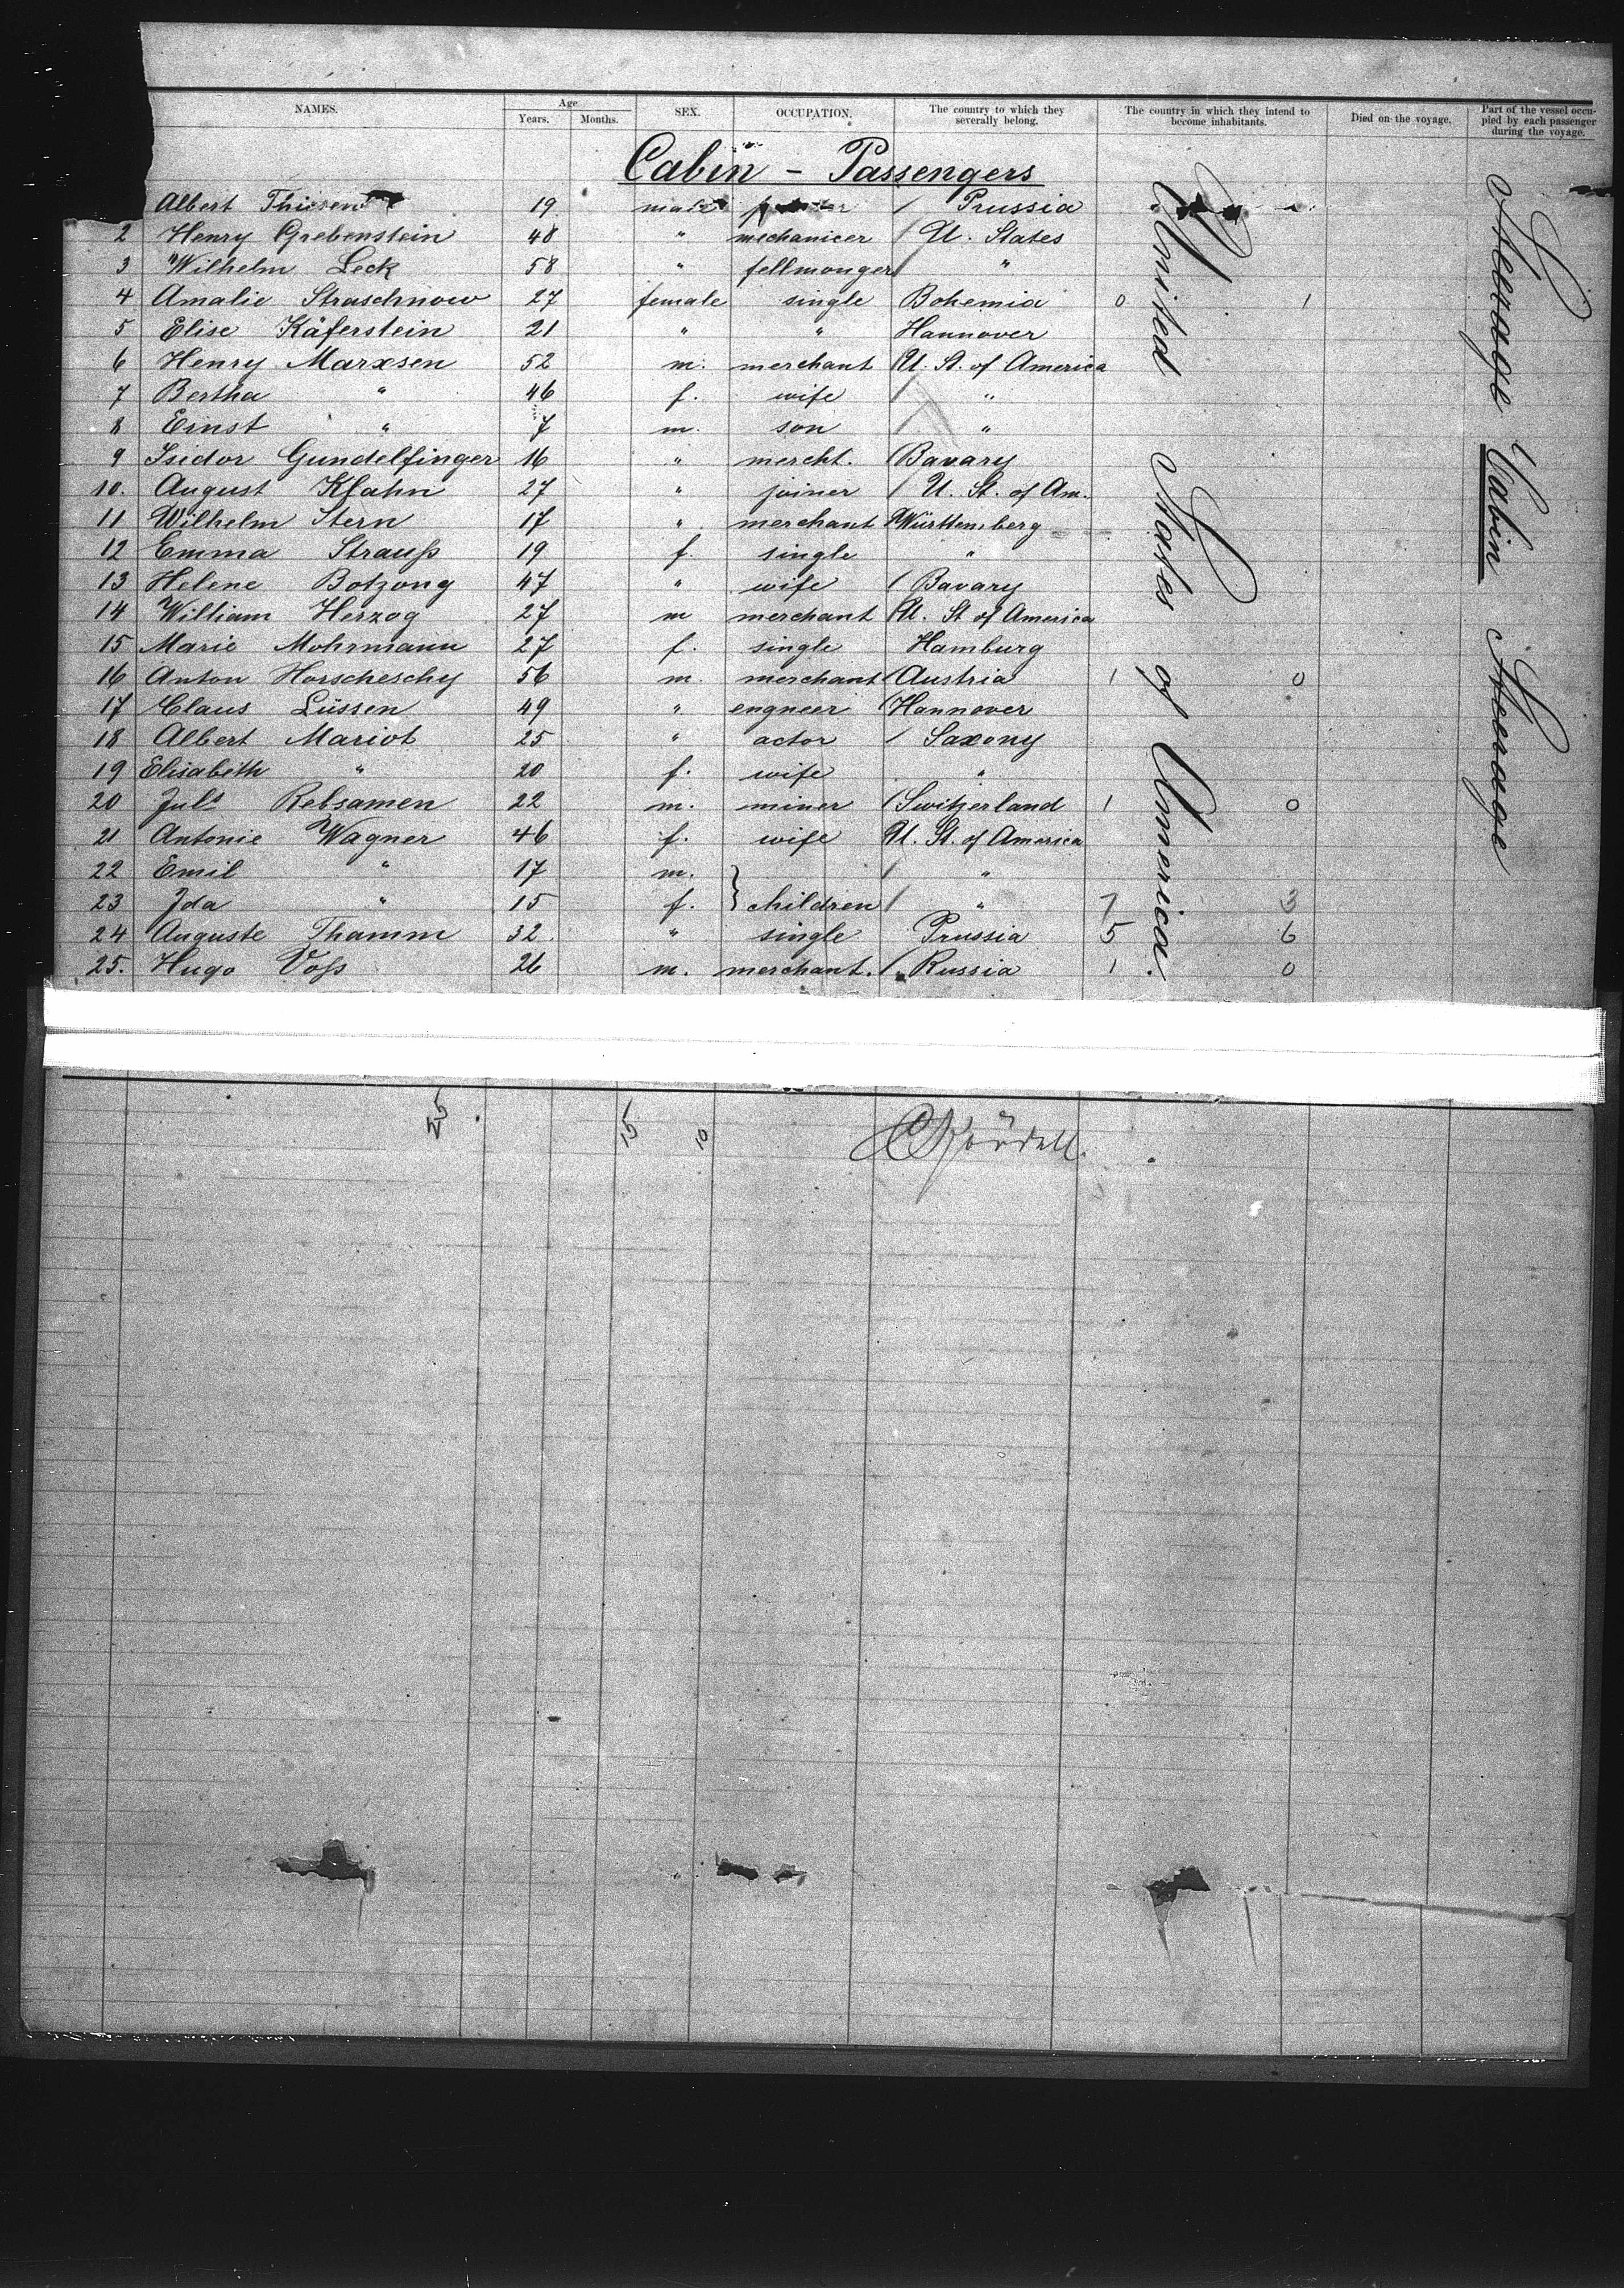 NAMES. Age Years. Months. SEX. OCCUPATION. The country to which they severally belong. The country in which they intend to become inhabitants. Died on the voyage. Part of the vessel occupied by each passenger during the voyage.
Cabin - Passengers
Albert Thiesen 19 male Prussia
2 Henry Grebenstein 48 " mechanicer / U. States
3 Wilhelm Leck 58 " fellmonger / "
4 Amalie Straschnow 27 female single Bohemia 0 1
5 Elise Käferstein 21 " " Hannover
6 Henry Marxsen 52 m. merchant / U. St. of America
7 Bertha " 46 f. wife / "
8 Ernst " 7 m. son "
9 Isidor Gundelfinger 16 " mercht. / Bavary
10. August Klahn 27 " joiner / U. St. of Am.
11 Wilhelm Stern 17 " merchant / Württemberg
12 Emma Strauß 19 f. single "
13 Helene Botzong 47 " wife / Bavary
14 William Herzog 27 m merchant / U. St of America
15 Marie Mohrmann 27 f. single Hamburg
16 Anton Horscheschy 56 m. merchant / Austria 1 0
17 Claus Lüssen 49 " engneer / Hannover
18 Albert Mariot 25 " actor / Saxony
19 Elisabeth " 20 f. wife "
20 Juls Rebsamen 22 m. miner / Switzerland 1 0
21 Antonie Wagner 46 f. wife U. St. of America
22 Emil " 17 m. / "
23 Ida " 15 f. } children / " 7 3
24 Auguste Thamm 32. " single Prussia 5 6
25. Hugo Voß 26 m. merchant. / Russia 1 0
United States of America.
Steerage Cabin Steerage
25 15 10